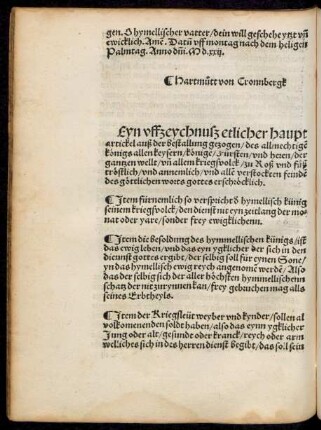 gen. O hymelischer vatter/ dein will geschehe ytzt vñ
ewicklich. Amē. Datū vff montag nach dem heligen
Palmtag. Anno dñi. M.d.xxij.
¶ Hartmůtt von Cronnbergk
Eyn vffzeychnusz etlicher haupt
artickel auß der bestallung gezogen/ des allmechtigē
königs allen keysern/ könige/ Fürsten/ vnd heren/ der
gantzen wellt/ vñ allem kriegsvolck/ zu Roß vnd fůß
tröstlich/ vnd annemlich/ vnd alle verstockten feinde
des göttlichen worts gottes erschöcklich.
¶ Item fürnemlich so verspricht d hymelisch künig
seinem kriegsvolck/ den dienst nit eyn zeitlang der mo
nat oder yare/ sonder frey ewigklichenn.
¶ Item die besoldung des hymmelischen künigs/ ist
das ewig leben/ vnd das eyn ygklicher der sich in den
dienst gottes ergibt/ der selbig soll für eynen Sone/
yn das hymelisch ewig reych angenomē werdē/ Also
das der selbig sich der aller höchsten hymmelischenn
schatz der nit zurynnen kan/ frey gebruchen mag alls
seines Erbtheyls.
¶ Item der Kriegsleüt weyber vnd kynder/ sollen al
volkomenen den soldt haben/ also das eynn ygklicher
Jung oder alt/ gesunde oder kranck/ reych oder arm
welliches sich in des herren dienst begibt/ das soll sein